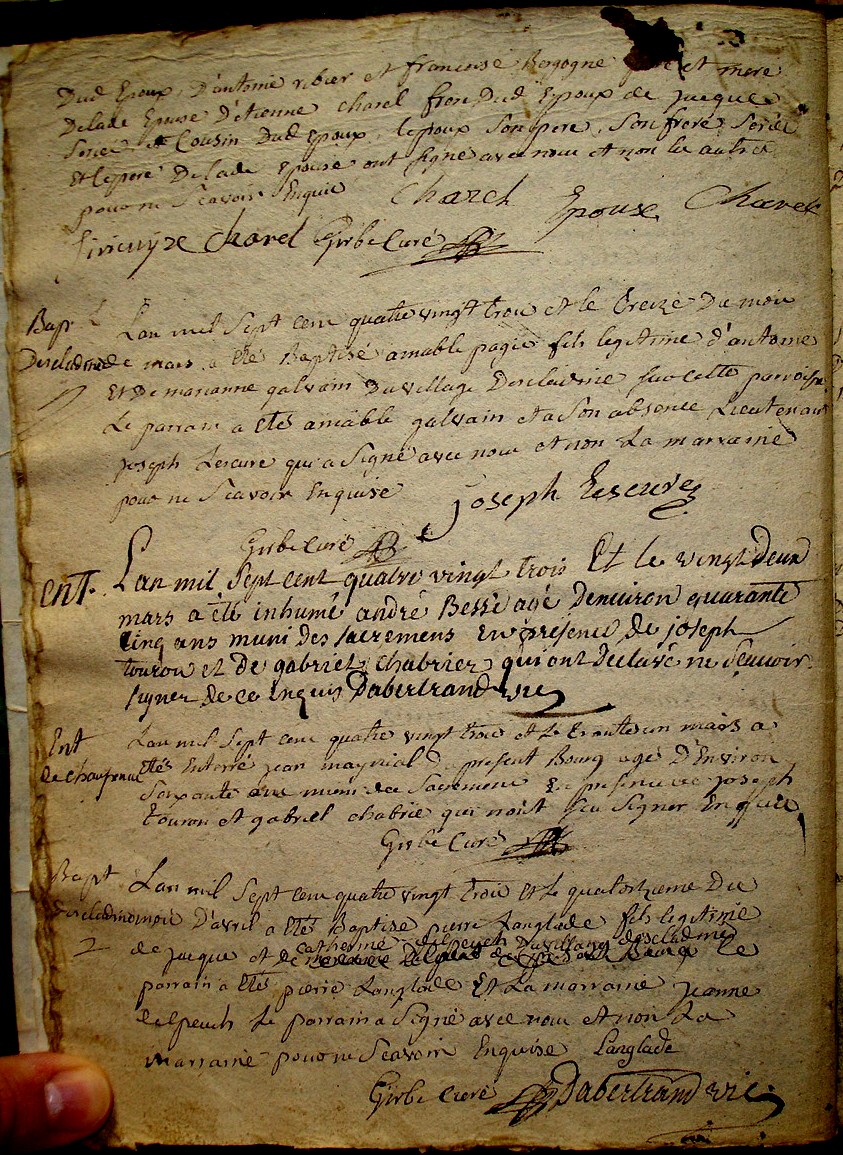 Dud Epoux, D'antoine ribier et francoise Borgogne et mere
Delade Epouse D'etienne Charel frere Dud Epoux de jacque
Cousin Dud Epoux, lepoux Son pere, Son frere
Et lepere Delade Epouse ont signé avec nous et non les autres
pour ne Scavoir Enquis
Charel Epouse Charel
Charel Girbe Curé
Bapt L'an mil Sept cent quatre vingt trois et le treize Du mois
de mars a Eté Baptisé amable pagie fils legitime d'antoine
Et De marianne galvain Du village Descladine sur cette parroisse
Le parrain a Etés amable galvain et a Son absence Lieutenant
joseph Lescure qui a Signé avec nous et non La marraine
pour ne Scavoir Enquise joseph Lescure
Girbe Curé
ent. L'an mil Sept cent quatre vingt trois Et le vingt deux
mars a été inhumé andré Besse agé denviron quarante
cinq ans muni des sacremens en présence de joseph
touron et de gabriel chabrier qui ont déclaré ne Scavoir
signer de ce inquis Dabertrand vic
Ent L'an mil Sept cent quatre vingt trois et Le trente un mars a
Etés Enterré jean maynial Du present Bourg agé D'Environ
Soixante ans muni des Sacremens En presence de joseph
touron et gabriel chabrié qui n'ont sçu Signer Enquis
Girbe Curé
Bapt L'an mil Sept cent quatre vingt trois et Le quatorzieme Du
mois D'avril a Etés Baptisé pierre Langlade fils legitime
2 de jacque et de catherine delpeuch Du villang descladines Le
parrain a Eté pierre Langlade Et La marraine jeanne
delpeuch Le parrain a Signé avec nous et non La
marraine pour ne Scavoir Enquise Langlade
Girbe Curé Dabertrand vic